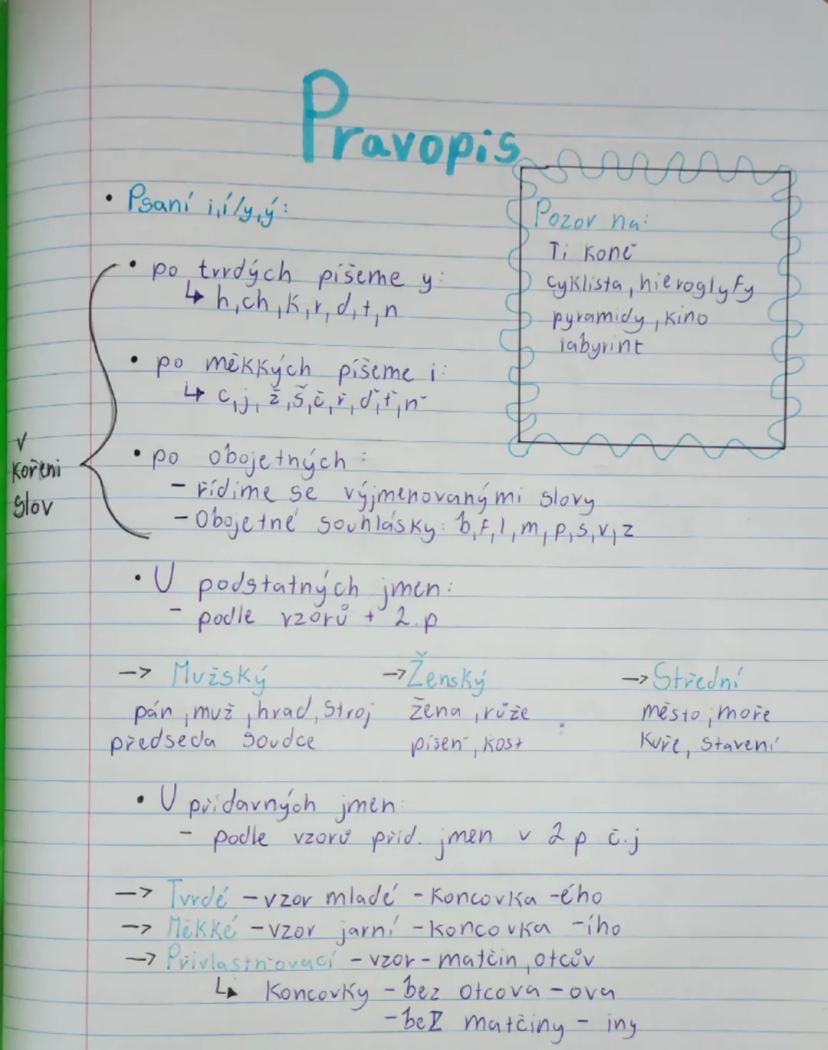 Pravopis
• Psaní i,í/y,ý:
Pozor na:
Ti koně
cyklista, hieroglyfy
pyramidy, kino
labyrint
• po tvrdých píšeme y:
↳ h, ch, k, r, d, t, n
• po měkkých píšeme i:
↳ c, j, ž, š, č, ř, ď, ť, ň
v
kořeni
slov
• po obojetných:
- řídíme se výjmenovanými slovy
- Obojetné souhlásky: b, f, l, m, p, s, v, z
• U podstatných jmen:
- podle vzorů + 2.p
→ Mužský → Ženský → Střední
pán, muž, hrad, stroj žena, růže město, moře
předseda soudce píseň, kost kuře, stavení
• U přídavných jmen:
- podle vzorů příd. jmen v 2 p č.j
→ Tvrdé - vzor mladé - koncovka -ého
→ Měkké - vzor jarní - koncovka -ího
→ Přivlastňovací - vzor - matčin, otcův
↳ Koncovky - bez otcova - ova
- bez matčiny - iny